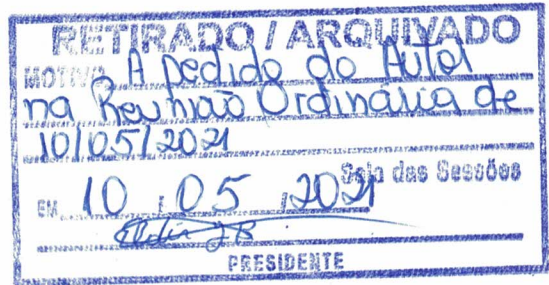 RETIRADO / ARQUIVADO
MOTIVO A pedido do Autor
na Reunião Ordinária de
10/05/2021
Sala das Sessões
EM 10 / 05 / 2021
PRESIDENTE